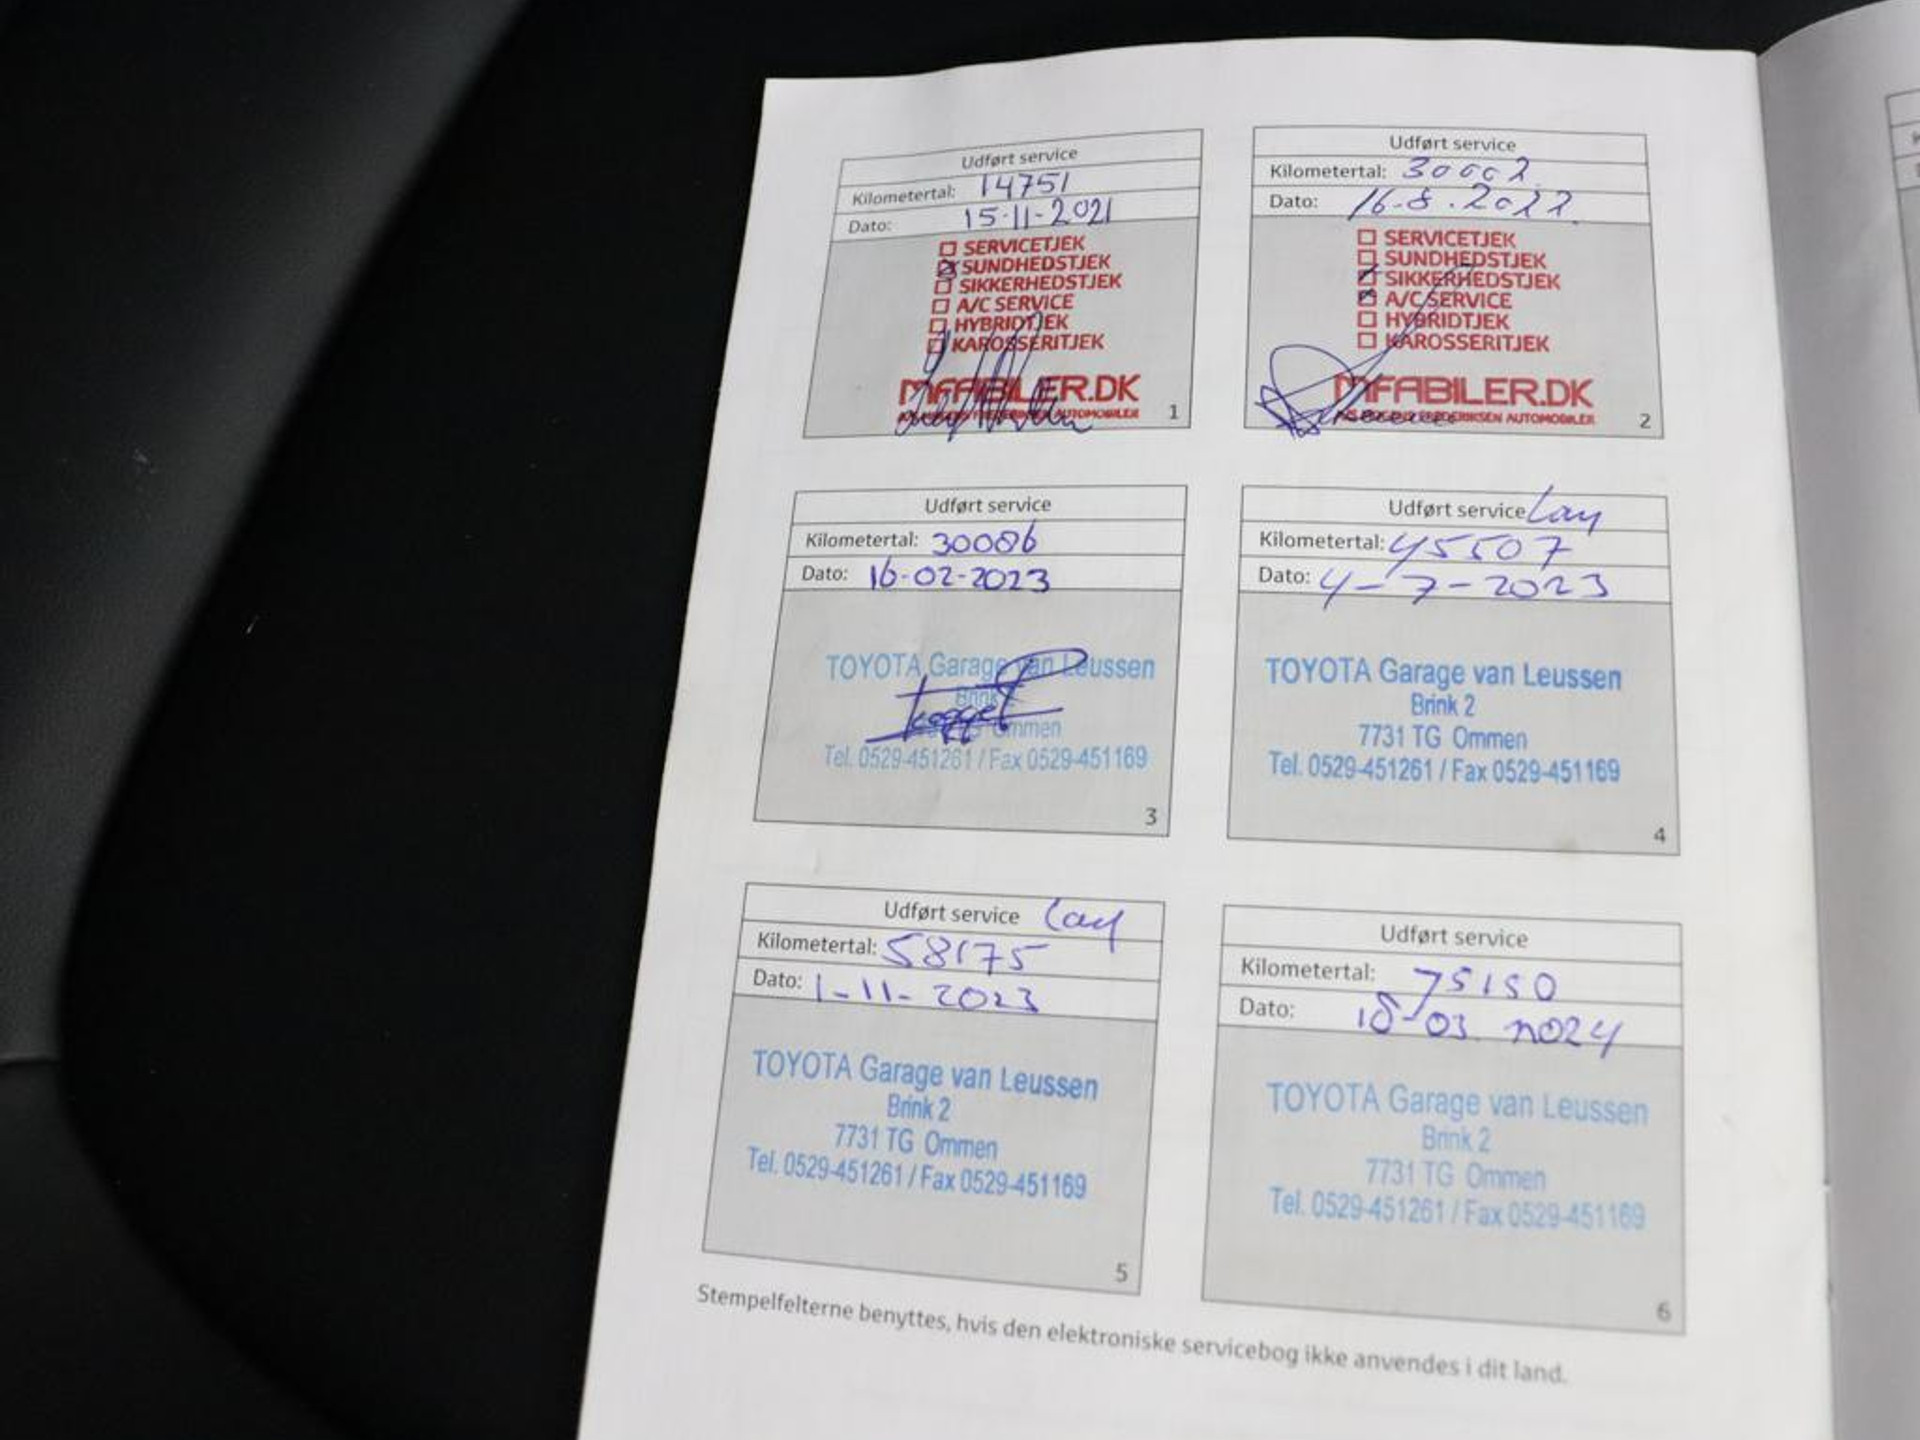 Udført service
Kilometertal: 14751
Dato: 15-11-2021
SERVICETJEK
SUNDHEDSTJEK
SIKKERHEDSTJEK
A/C SERVICE
HYBRIDTJEK
KAROSSERITJEK
MFABILER.DK
FREDERIKSEN AUTOMOBILER
1
Udført service
Kilometertal: 30002
Dato: 16-8.2022
SERVICETJEK
SUNDHEDSTJEK
SIKKERHEDSTJEK
A/C SERVICE
HYBRIDTJEK
KAROSSERITJEK
MFABILER.DK
FREDERIKSEN AUTOMOBILER
2
Udført service
Kilometertal: 30086
Dato: 16-02-2023
TOYOTA Garage van Leussen
Brink 2
Ommen
Tel. 0529-451261 / Fax 0529-451169
3
Udført service
Kilometertal: 45507
Dato: 4-7-2023
TOYOTA Garage van Leussen
Brink 2
7731 TG Ommen
Tel. 0529-451261 / Fax 0529-451169
4
Udført service
Kilometertal: 58175
Dato: 1-11-2023
TOYOTA Garage van Leussen
Brink 2
7731 TG Ommen
Tel. 0529-451261 / Fax 0529-451169
5
Udført service
Kilometertal: 75150
Dato: 18-03 2024
TOYOTA Garage van Leussen
Brink 2
7731 TG Ommen
Tel. 0529-451261 / Fax 0529-451169
6
Stempelfelterne benyttes, hvis den elektroniske servicebog ikke anvendes i dit land.